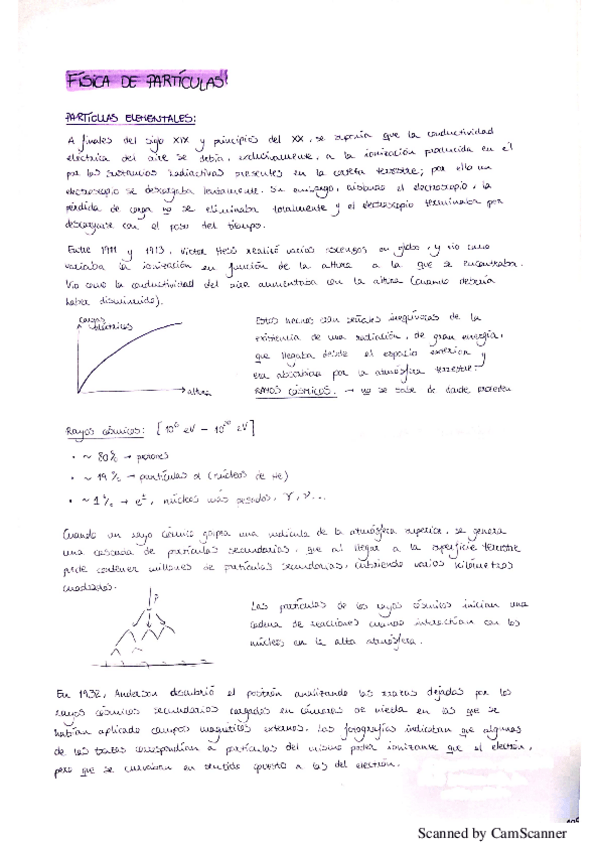 FÍSICA DE PARTÍCULAS
PARTÍCULAS ELEMENTALES:
A finales del siglo XIX y principios del XX, se suponía que la conductividad
eléctrica del aire se debía, únicamente, a la ionización producida en él
por las sustancias radiactivas presentes en la corteza terrestre; por ello un
electroscopio se descargaba lentamente. Sin embargo, aislando el electroscopio, la
pérdida de carga no se eliminaba totalmente y el electroscopio terminaba por
descargarse con el paso del tiempo.
Entre 1911 y 1913, Victor Hess realizó varios ascensos en globo, y vio como
variaba la ionización en función de la altura a la que se encontraba.
Vio como la conductividad del aire aumentaba con la altura (cuando debería
haber disminuido).
cargas
eléctricas
altura
Estos hechos dan señales inequívocas de la
existencia de una radiación, de gran energía,
que llegaba desde el espacio exterior y
era absorbida por la atmósfera terrestre:
RAYOS CÓSMICOS. → no se sabe de donde proceden
Rayos cósmicos: [10⁶ eV - 10²⁰ eV]
· ~ 80% → protones
· ~ 19% → partículas α (núcleos de He)
· ~ 1% → e±, núcleos más pesados, γ, ν...
Cuando un rayo cósmico golpea una molécula de la atmósfera superior, se genera
una cascada de partículas secundarias, que al llegar a la superficie terrestre
puede contener millones de partículas secundarias, cubriendo varios kilómetros
cuadrados.
P
Las partículas de los rayos cósmicos inician una
cadena de reacciones cuando interactúan con los
núcleos en la alta atmósfera.
En 1932, Anderson descubrió el positrón analizando las trazas dejadas por los
rayos cósmicos secundarios cargados en cámaras de niebla en las que se
habían aplicado campos magnéticos externos. Las fotografías indicaban que algunas
de las trazas correspondían a partículas del mismo poder ionizante que el electrón,
pero que se curvaban en sentido opuesto a las del electrón.
Scanned by CamScanner